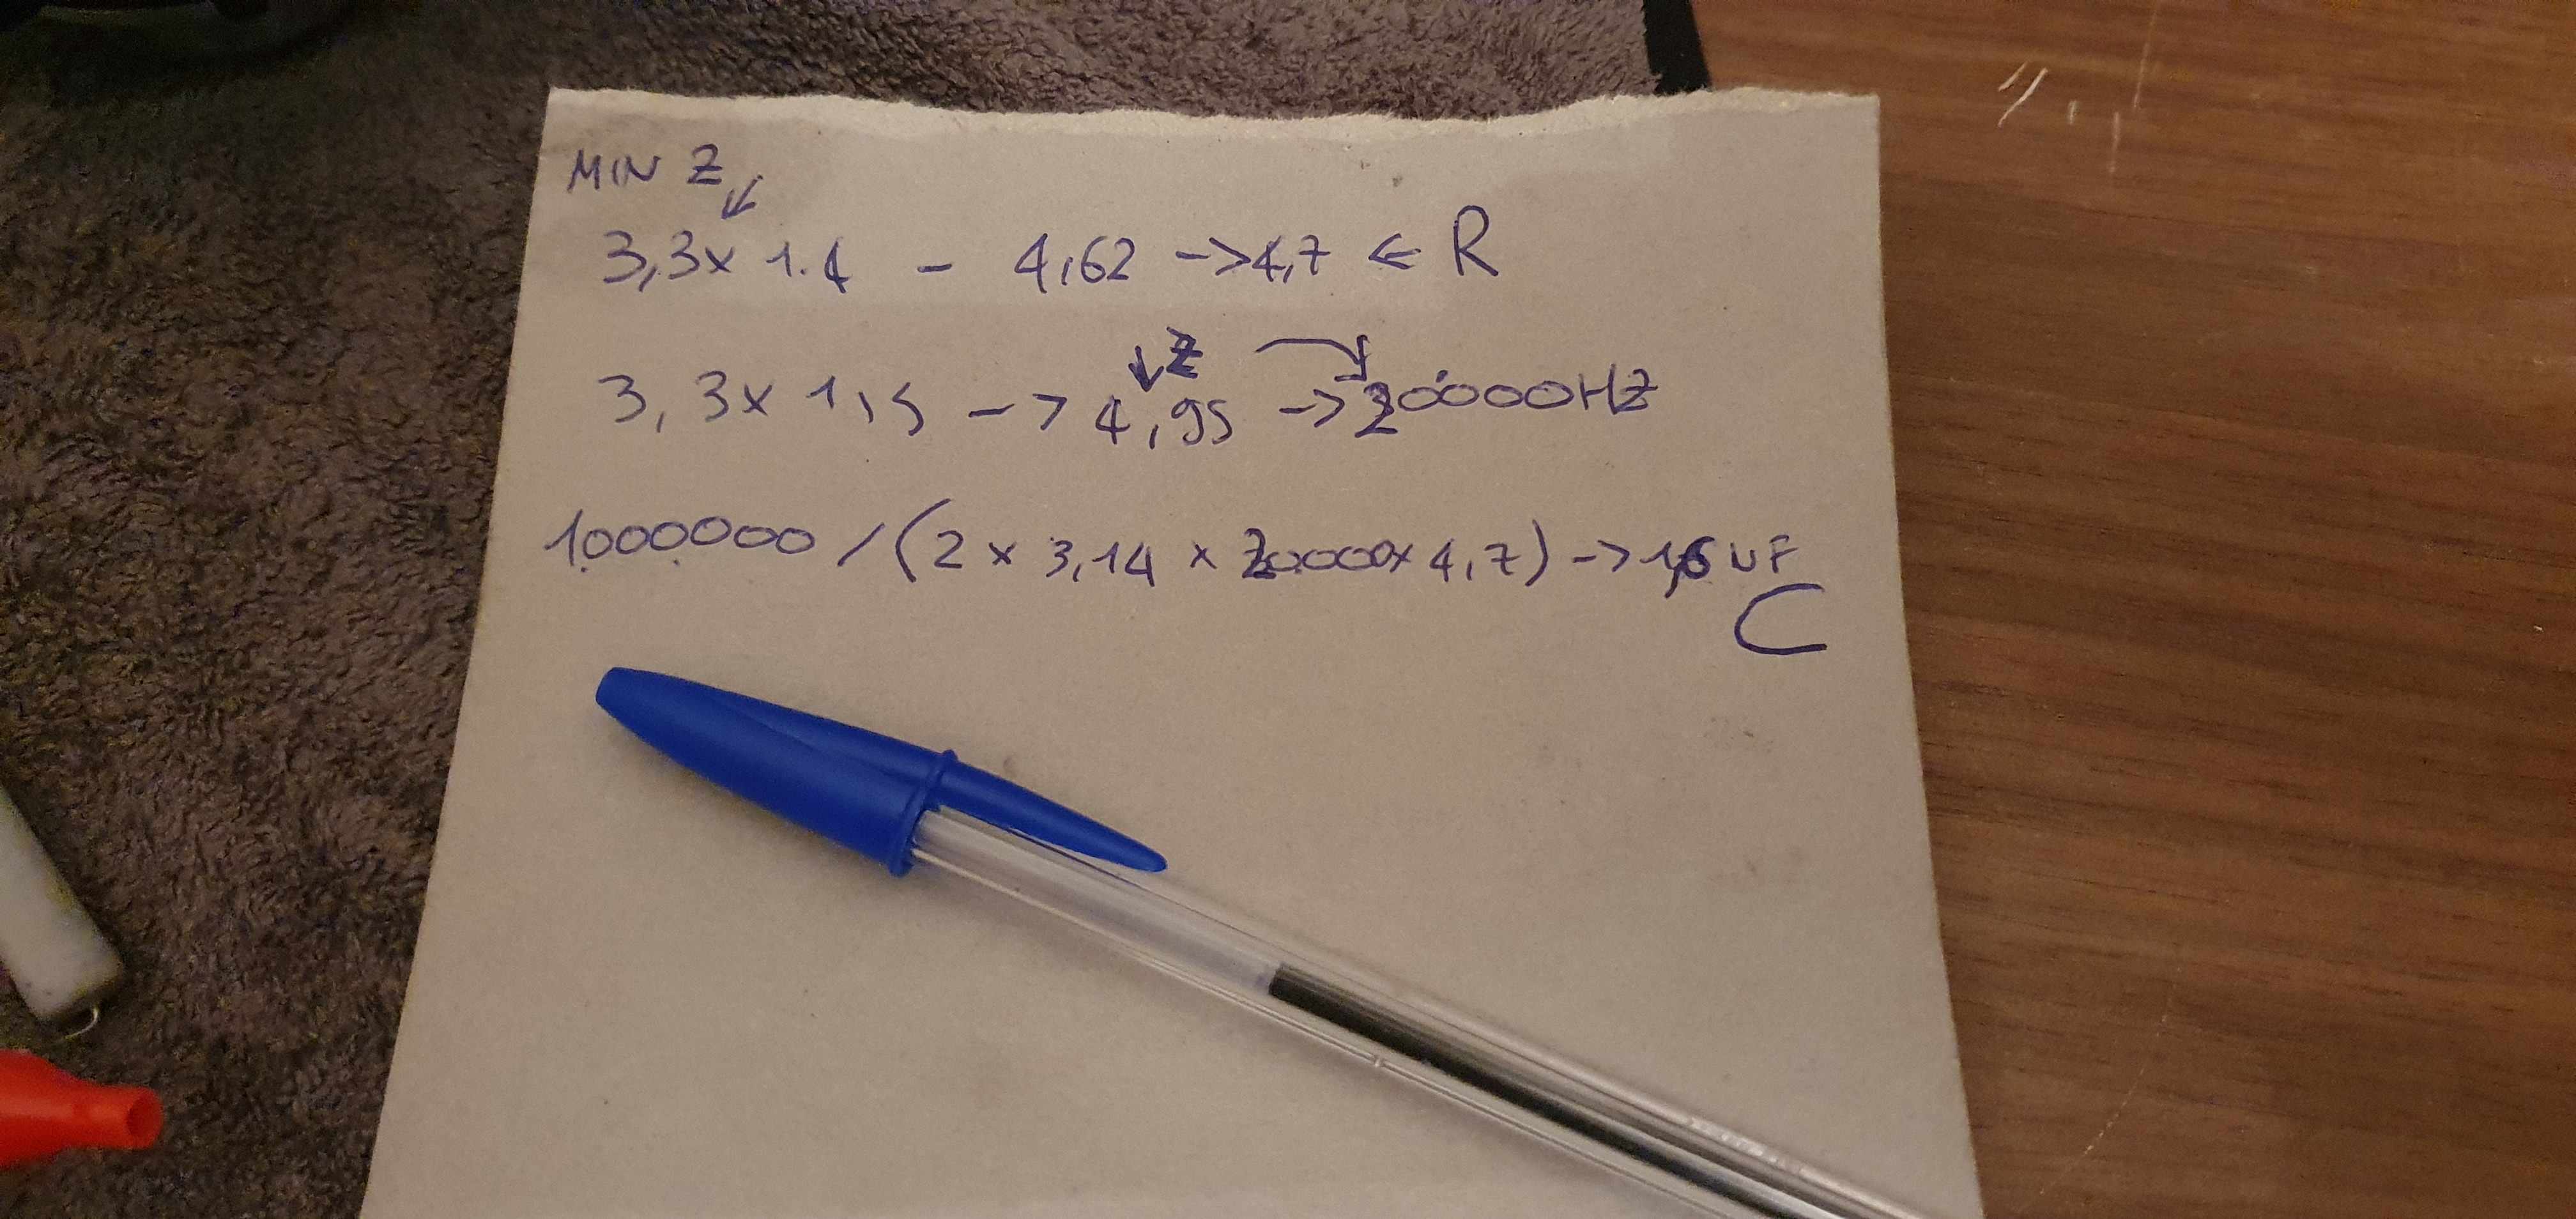 MIN Z
3,3x 1.4 - 4,62 -> 4,7 <- R
Z
3,3x 1,5 -> 4,95 -> 20000HZ
1.000.000 / (2 x 3,14 x 20.000x 4,7) -> 1,6 UF
C